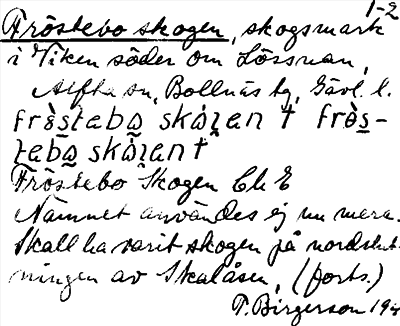 1-2
Fröstebo skogen, skogsmark
i Viken söder om Lössnan,
Alfta sn, Bollnäs tg, Gävl. l.
frö̀stabo skóɡen † frö̀s-
tabo skóɡen †
Fröstebo Skogen Ch E
Namnet användes ej nu mera.
Skall ha varit skogen på nordslut-
ningen av Skalåsen, (forts.)
T. Birgerson 194